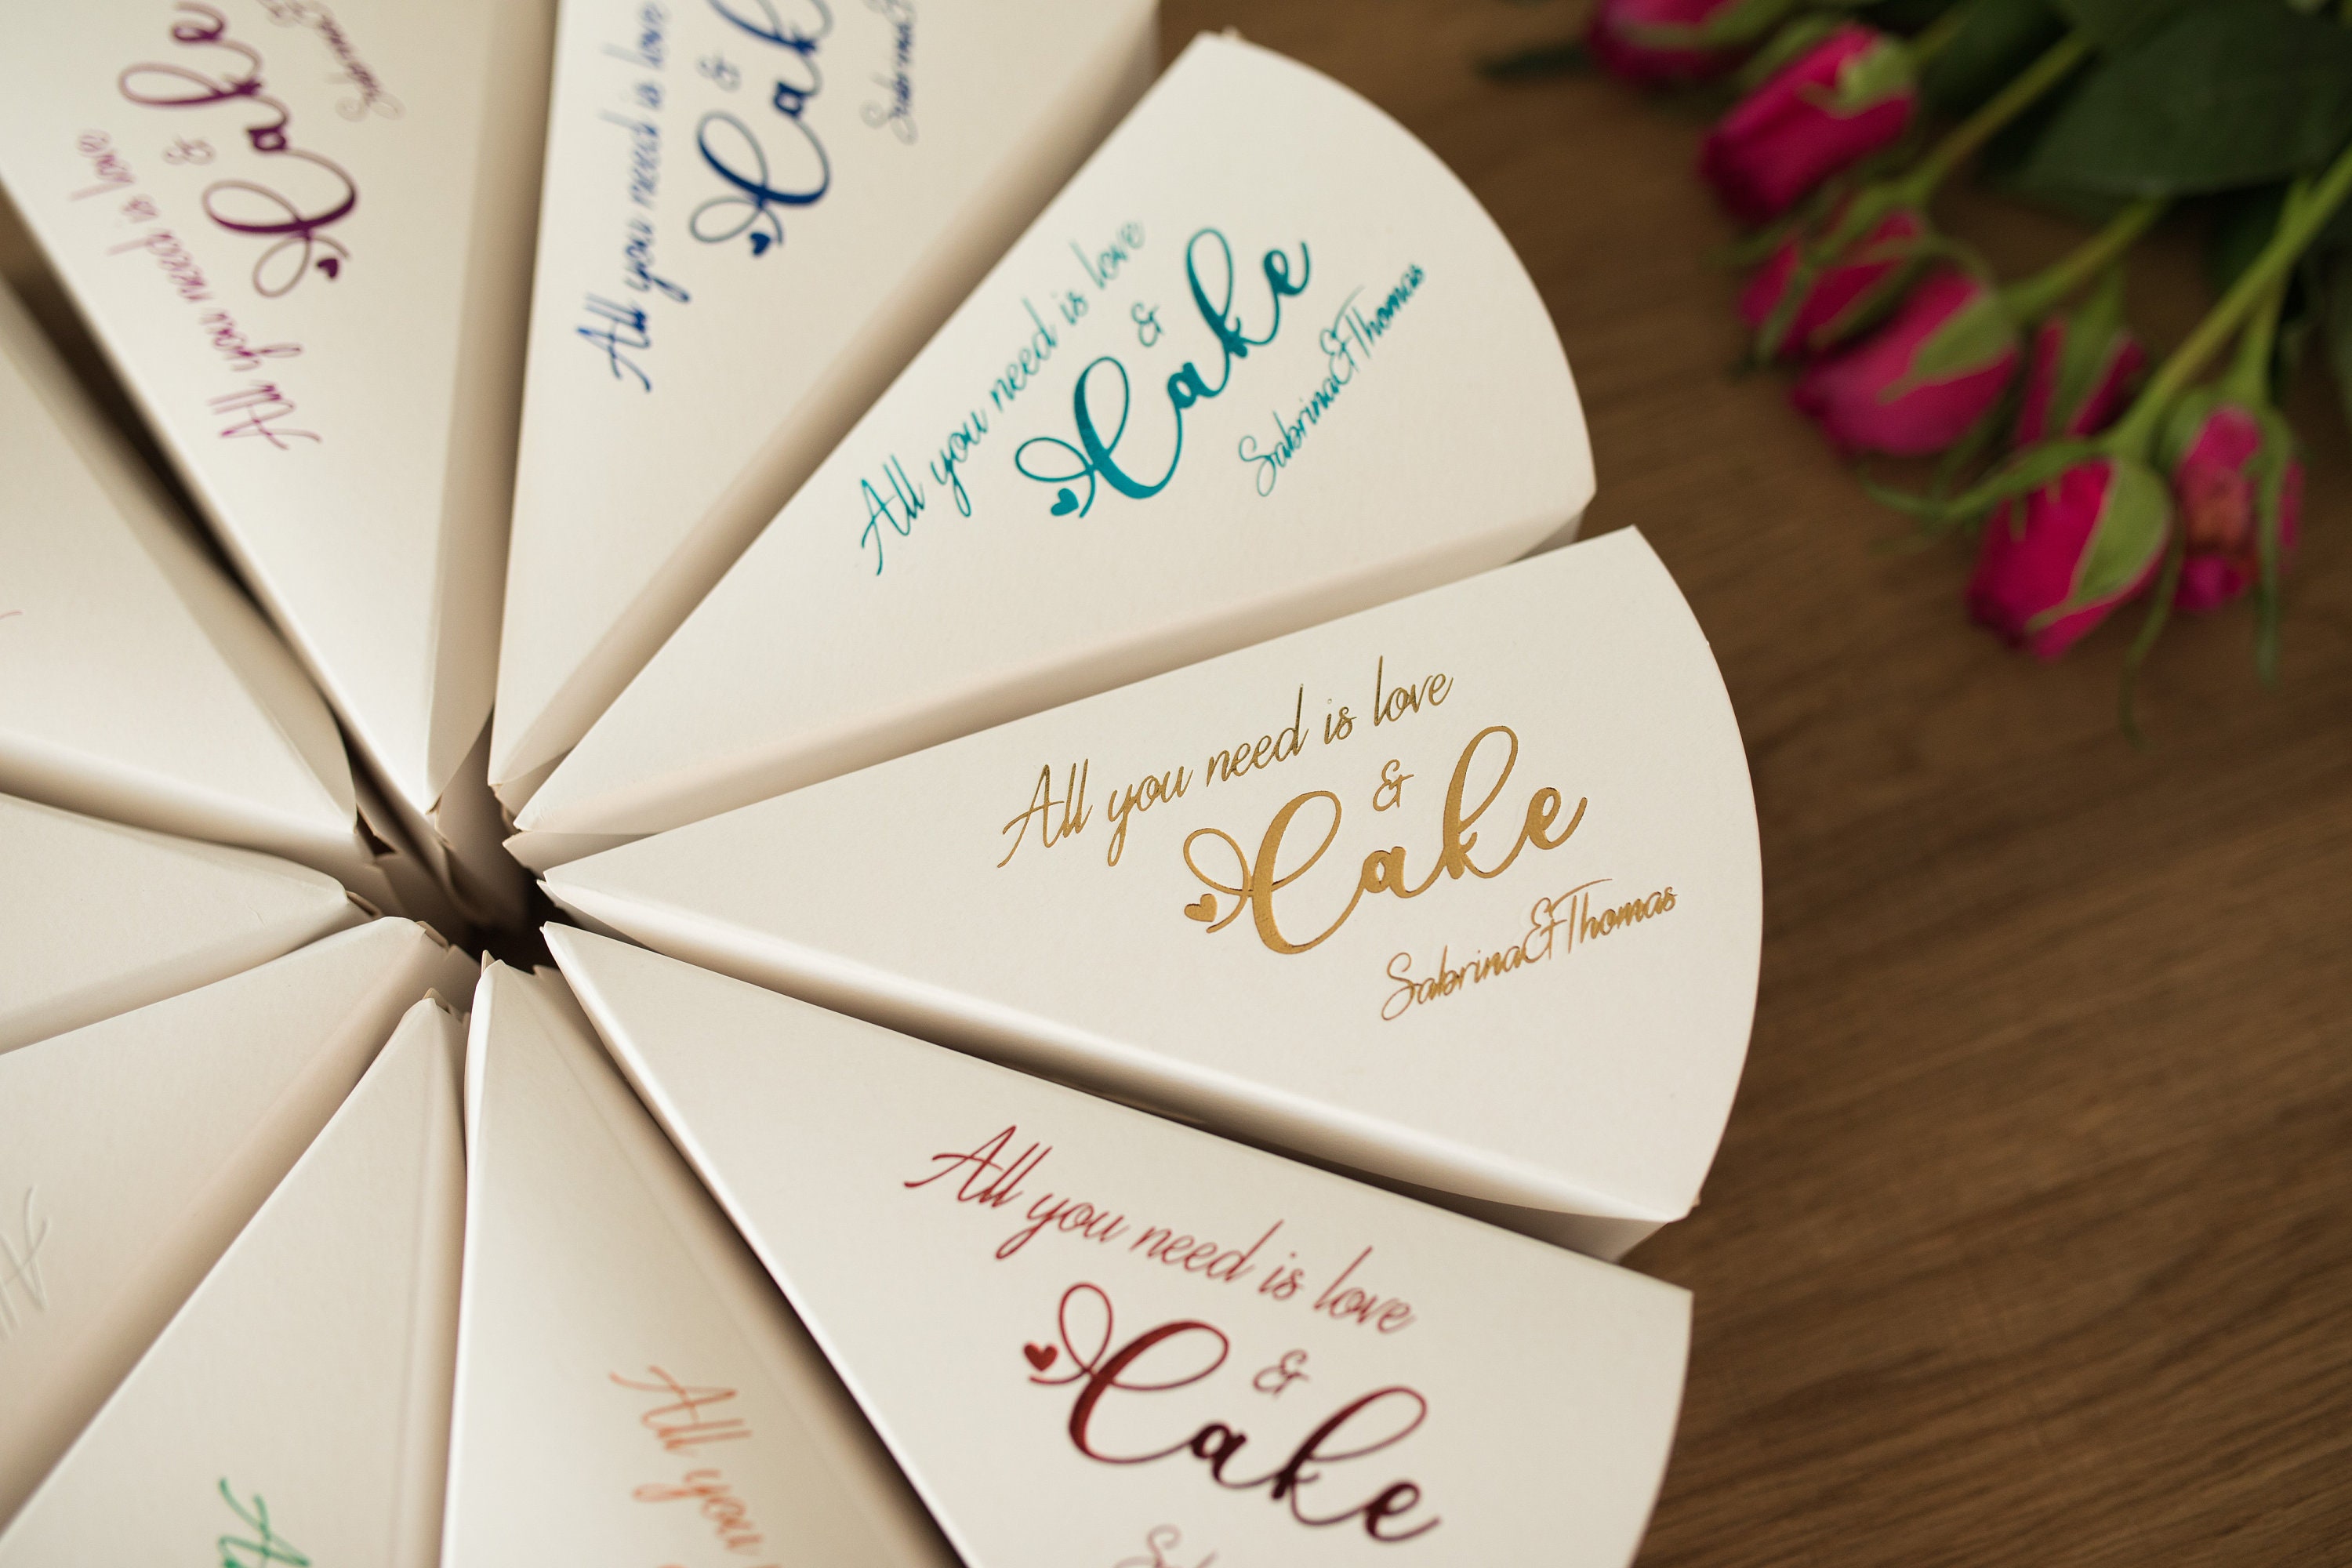 All you need is love
&
Cake
Sabrina&
All you need is love
&
Cak
Sabrina&
All you need is love
&
Cake
Sabrina&Thomas
All you need is love
&
Cake
Sabrina&Thomas
All you need is love
&
Cake
All you